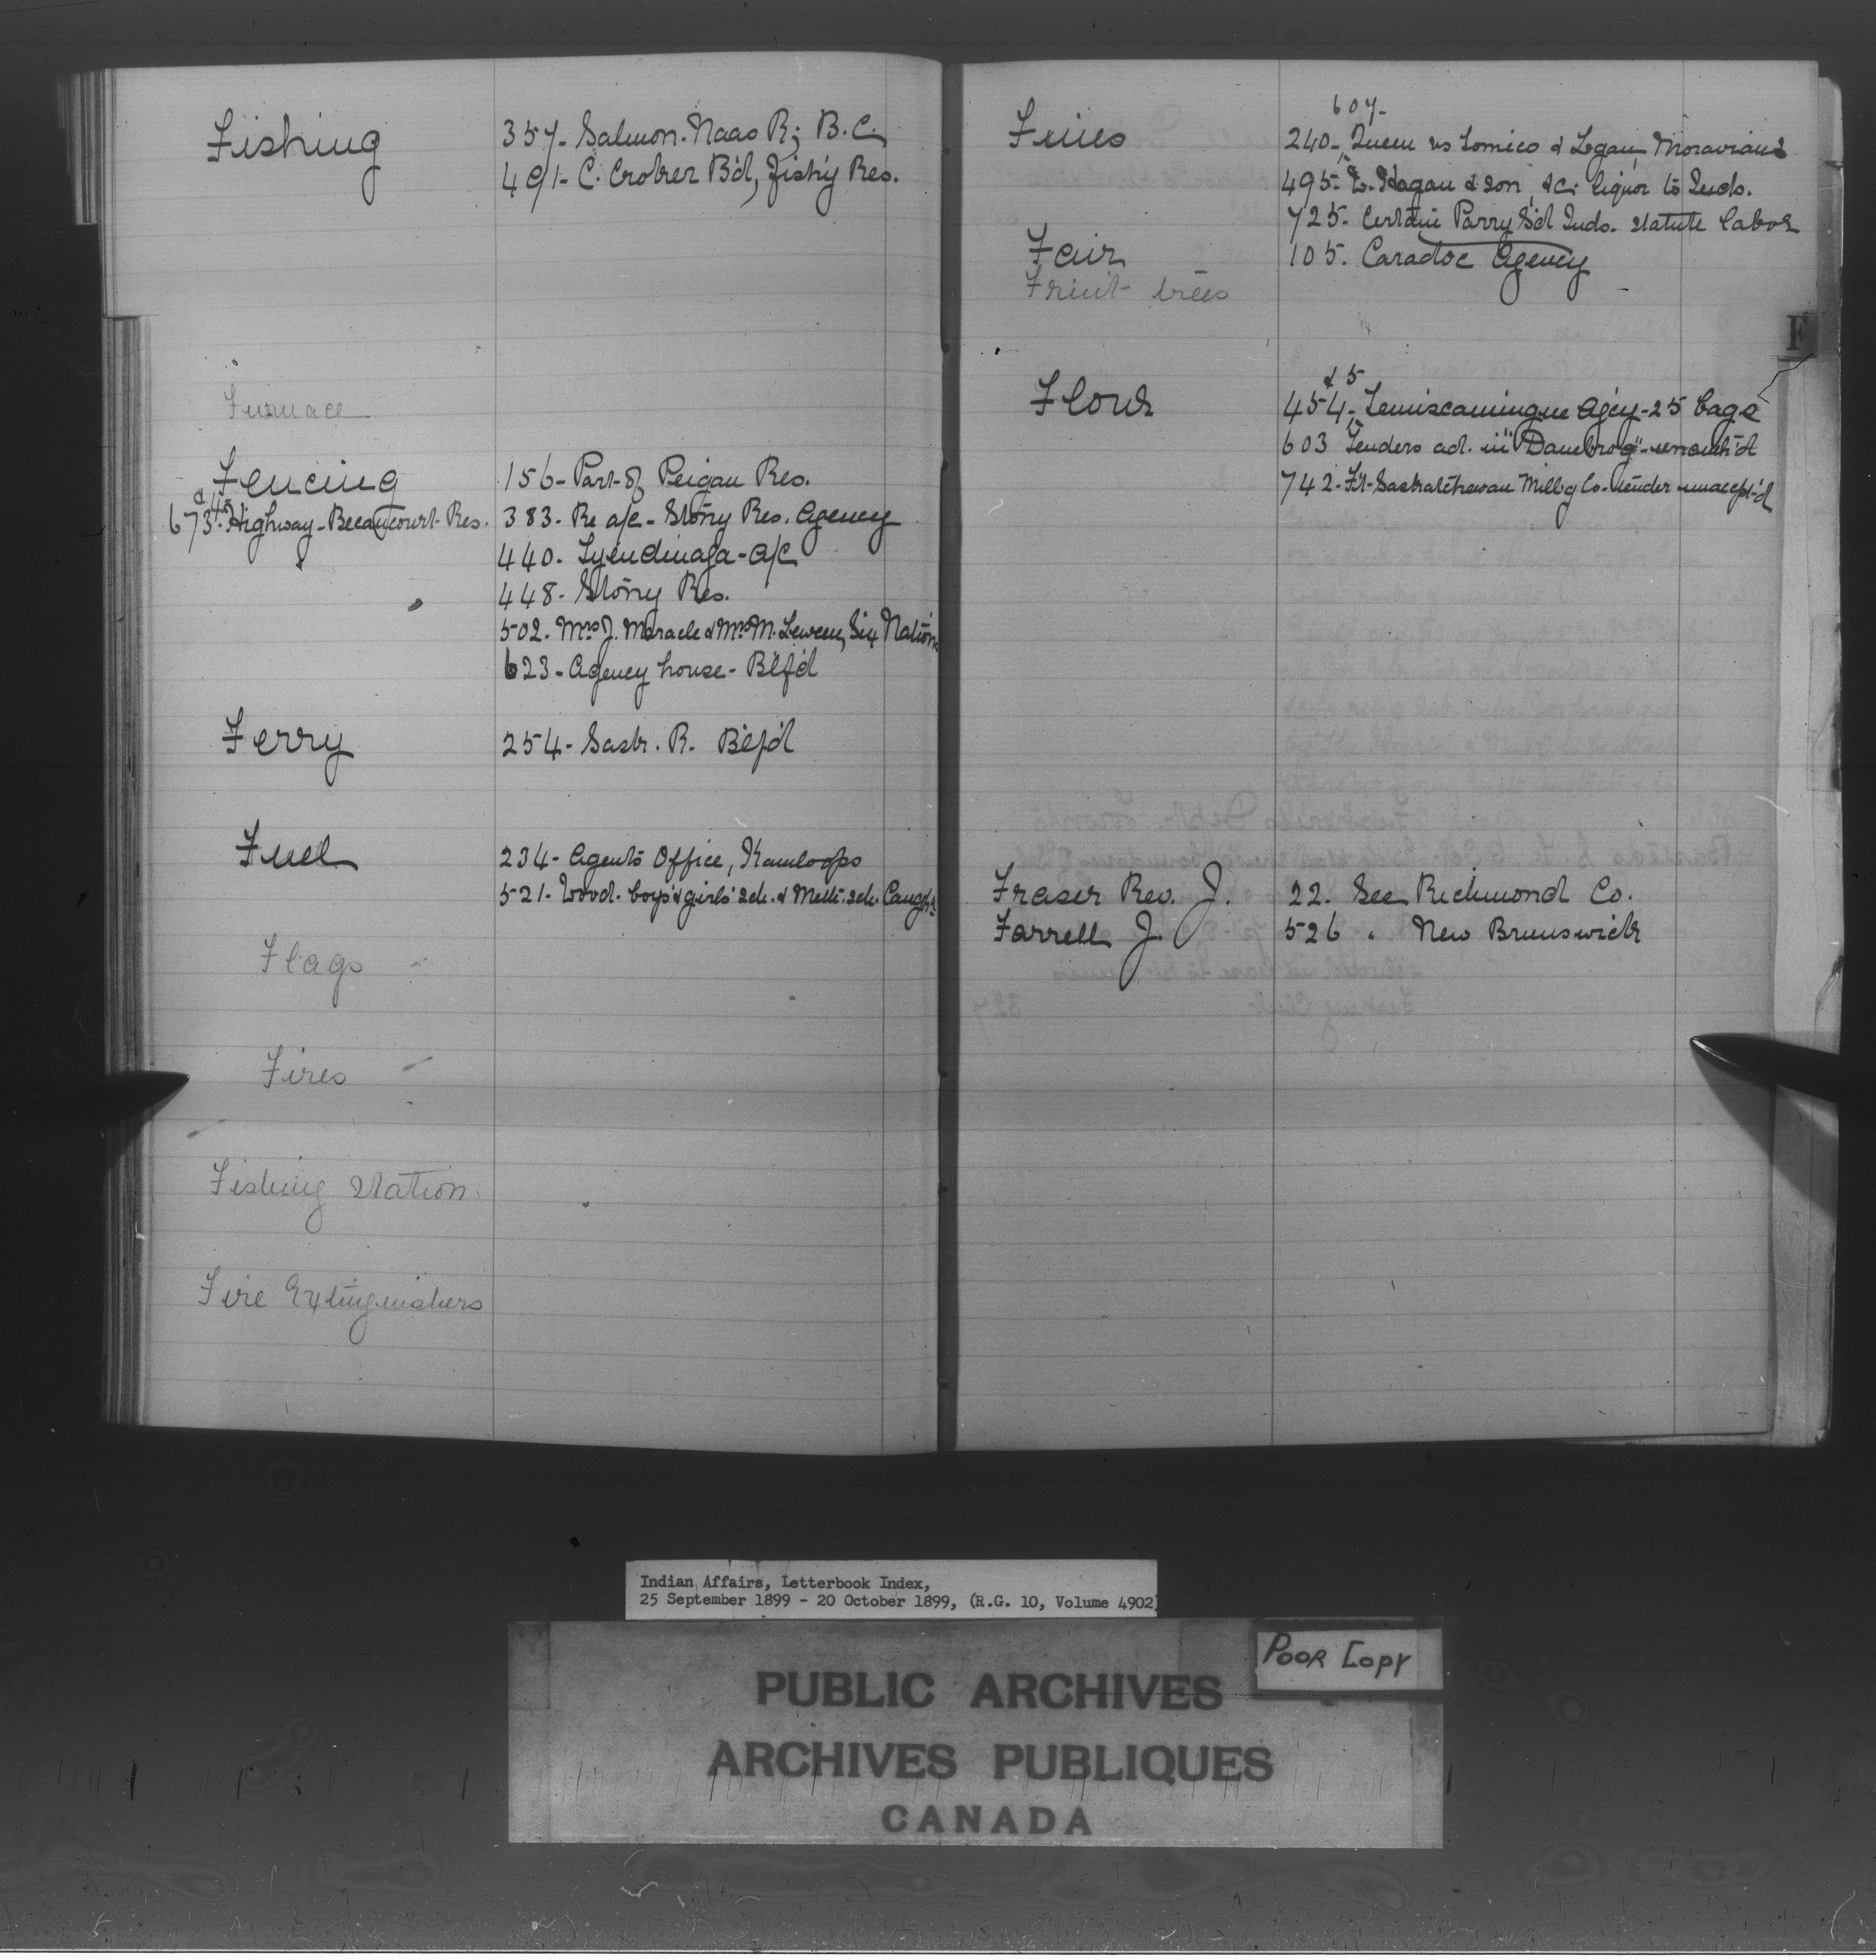 Fishing
357- Salmon- Naas R; B.C.
491- C. Croker B'd, fish'y Res.
Furnace
Fencing
156- Part of Peigan Res.
673 & 4- Highway- Becancourt Res.
383- Re a/c- Stony Res. Agency
440- Tyendinaga- a/c
448- Stony Res.
502. Mrs J. Maracle & Mrs M. Six Nations
623- Agency house- B'lf'd
Ferry
254- Sask. R. B'lf'd
Fuel
234- Agents Office, Kamloops
521- Wood- boys' & girls' sch. & Meth. sch. Caugh'a
Flags
Fires
Fishing Station
Fire Extinguishers
Fines
607-
240-, Queen vs Tomico & Logan, Moravians
495- Hagan & son, &c. liquor to Inds.
725- Certain Parry S'd Inds. statute labor
Fair
105. Caradoc Agency
Fruit trees
F
Flour
& 5
454-, Temiscamingue Ag'cy- 25 bags
603 Tenders ad. in "Danebrog"- unauth'd
742- Ft- Saskatchewan Mill'g Co- tender unaccept'd
Fraser Rev. J.
22. See Richmond Co.
Farrell J.
526 " New Brunswick
Indian Affairs, Letterbook Index,
25 September 1899 - 20 October 1899, (R.G. 10, Volume 4902)
POOR COPY
PUBLIC ARCHIVES
ARCHIVES PUBLIQUES
CANADA